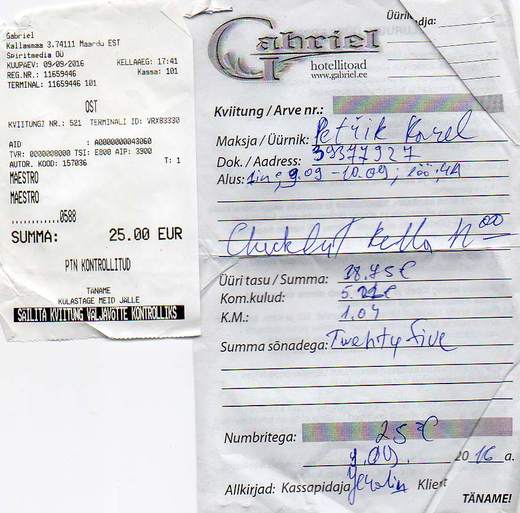 Gabriel
Kallasmaa 3.74111 Maardu EST
Spiritmedia OÜ
KUUPAEV: 09/09/2016 KELLAAEG: 17:41
REG.NR.: 11659446 Kassa: 101
TERMINAL: 11659446 101
OST
KVIITUNGI NR.: 521 TERMINALI ID: VRX83330
AID : A0000000043060
TVR: 0000008000 TSI: E800 AIP: 3900
AUTOR. KOOD: 157036 T: 1
MAESTRO
MAESTRO
...........0588
SUMMA: 25.00 EUR
PIN KONTROLLITUD
TÄNAME
KULASTAGE MEID JALLE
SAILITA KVIITUNG VALJAVOTTE KONTROLLIKS
Üürileandja:
Gabriel
hotellitoad
www.gabriel.ee
Kviitung / Arve nr.:
Maksja / Üürnik: Petřík Karel
Dok. / Aadress: 39377927
Alus: 1in, 9.09 - 10.09;
Checkout kella
Üüri tasu / Summa: 18.75€
Kom.kulud: 5.21€
K.M.: 1,04
Summa sõnadega: Twenty five
Numbritega: 25€
9.09. 2016 a.
Allkirjad: Kassapidaja Klient
TÄNAME!